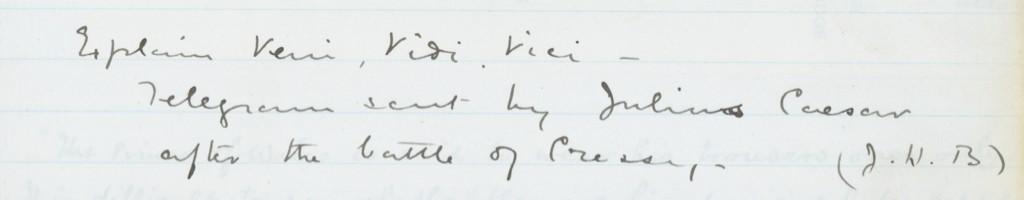 Explain Veni, Vidi, Vici –
Telegram sent by Julius Caesar
after the battle of Cressy, – (J. W. B)